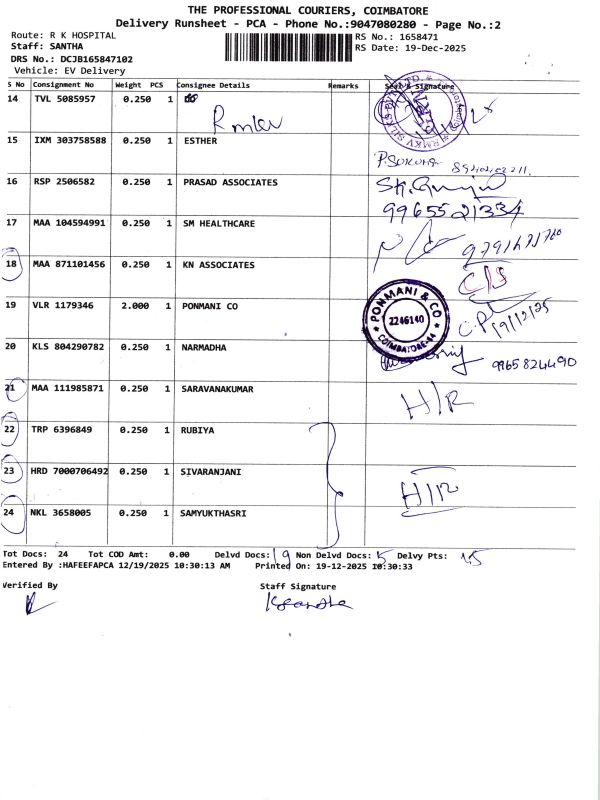 THE PROFESSIONAL COURIERS, COIMBATORE
Delivery Runsheet - PCA - Phone No.:9047080280 - Page No.:2
Route: R K HOSPITAL RS No.: 1658471
Staff: SANTHA RS Date: 19-Dec-2025
DRS No.: DCJB165847102
Vehicle: EV Delivery
S No Consignment No Weight PCS Consignee Details Remarks Seal & Signature
14 TVL 5085957 0.250 1 Rmkv
15 IXM 303758588 0.250 1 ESTHER
16 RSP 2506582 0.250 1 PRASAD ASSOCIATES
9965521334
17 MAA 104594991 0.250 1 SM HEALTHCARE
18 MAA 871101456 0.250 1 KN ASSOCIATES C/S
19 VLR 1179346 2.000 1 PONMANI CO PONMANI & CO 2246140 COIMBATORE-44 19/12/25
20 KLS 804290782 0.250 1 NARMADHA 9965824490
21 MAA 111985871 0.250 1 SARAVANAKUMAR H/R
22 TRP 6396849 0.250 1 RUBIYA
23 HRD 7000706492 0.250 1 SIVARANJANI H/R
24 NKL 3658005 0.250 1 SAMYUKTHASRI
Tot Docs: 24 Tot COD Amt: 0.00 Delvd Docs: 19 Non Delvd Docs: 5 Delvy Pts: 15
Entered By :HAFEEFAPCA 12/19/2025 10:30:13 AM Printed On: 19-12-2025 10:30:33
Verified By Staff Signature